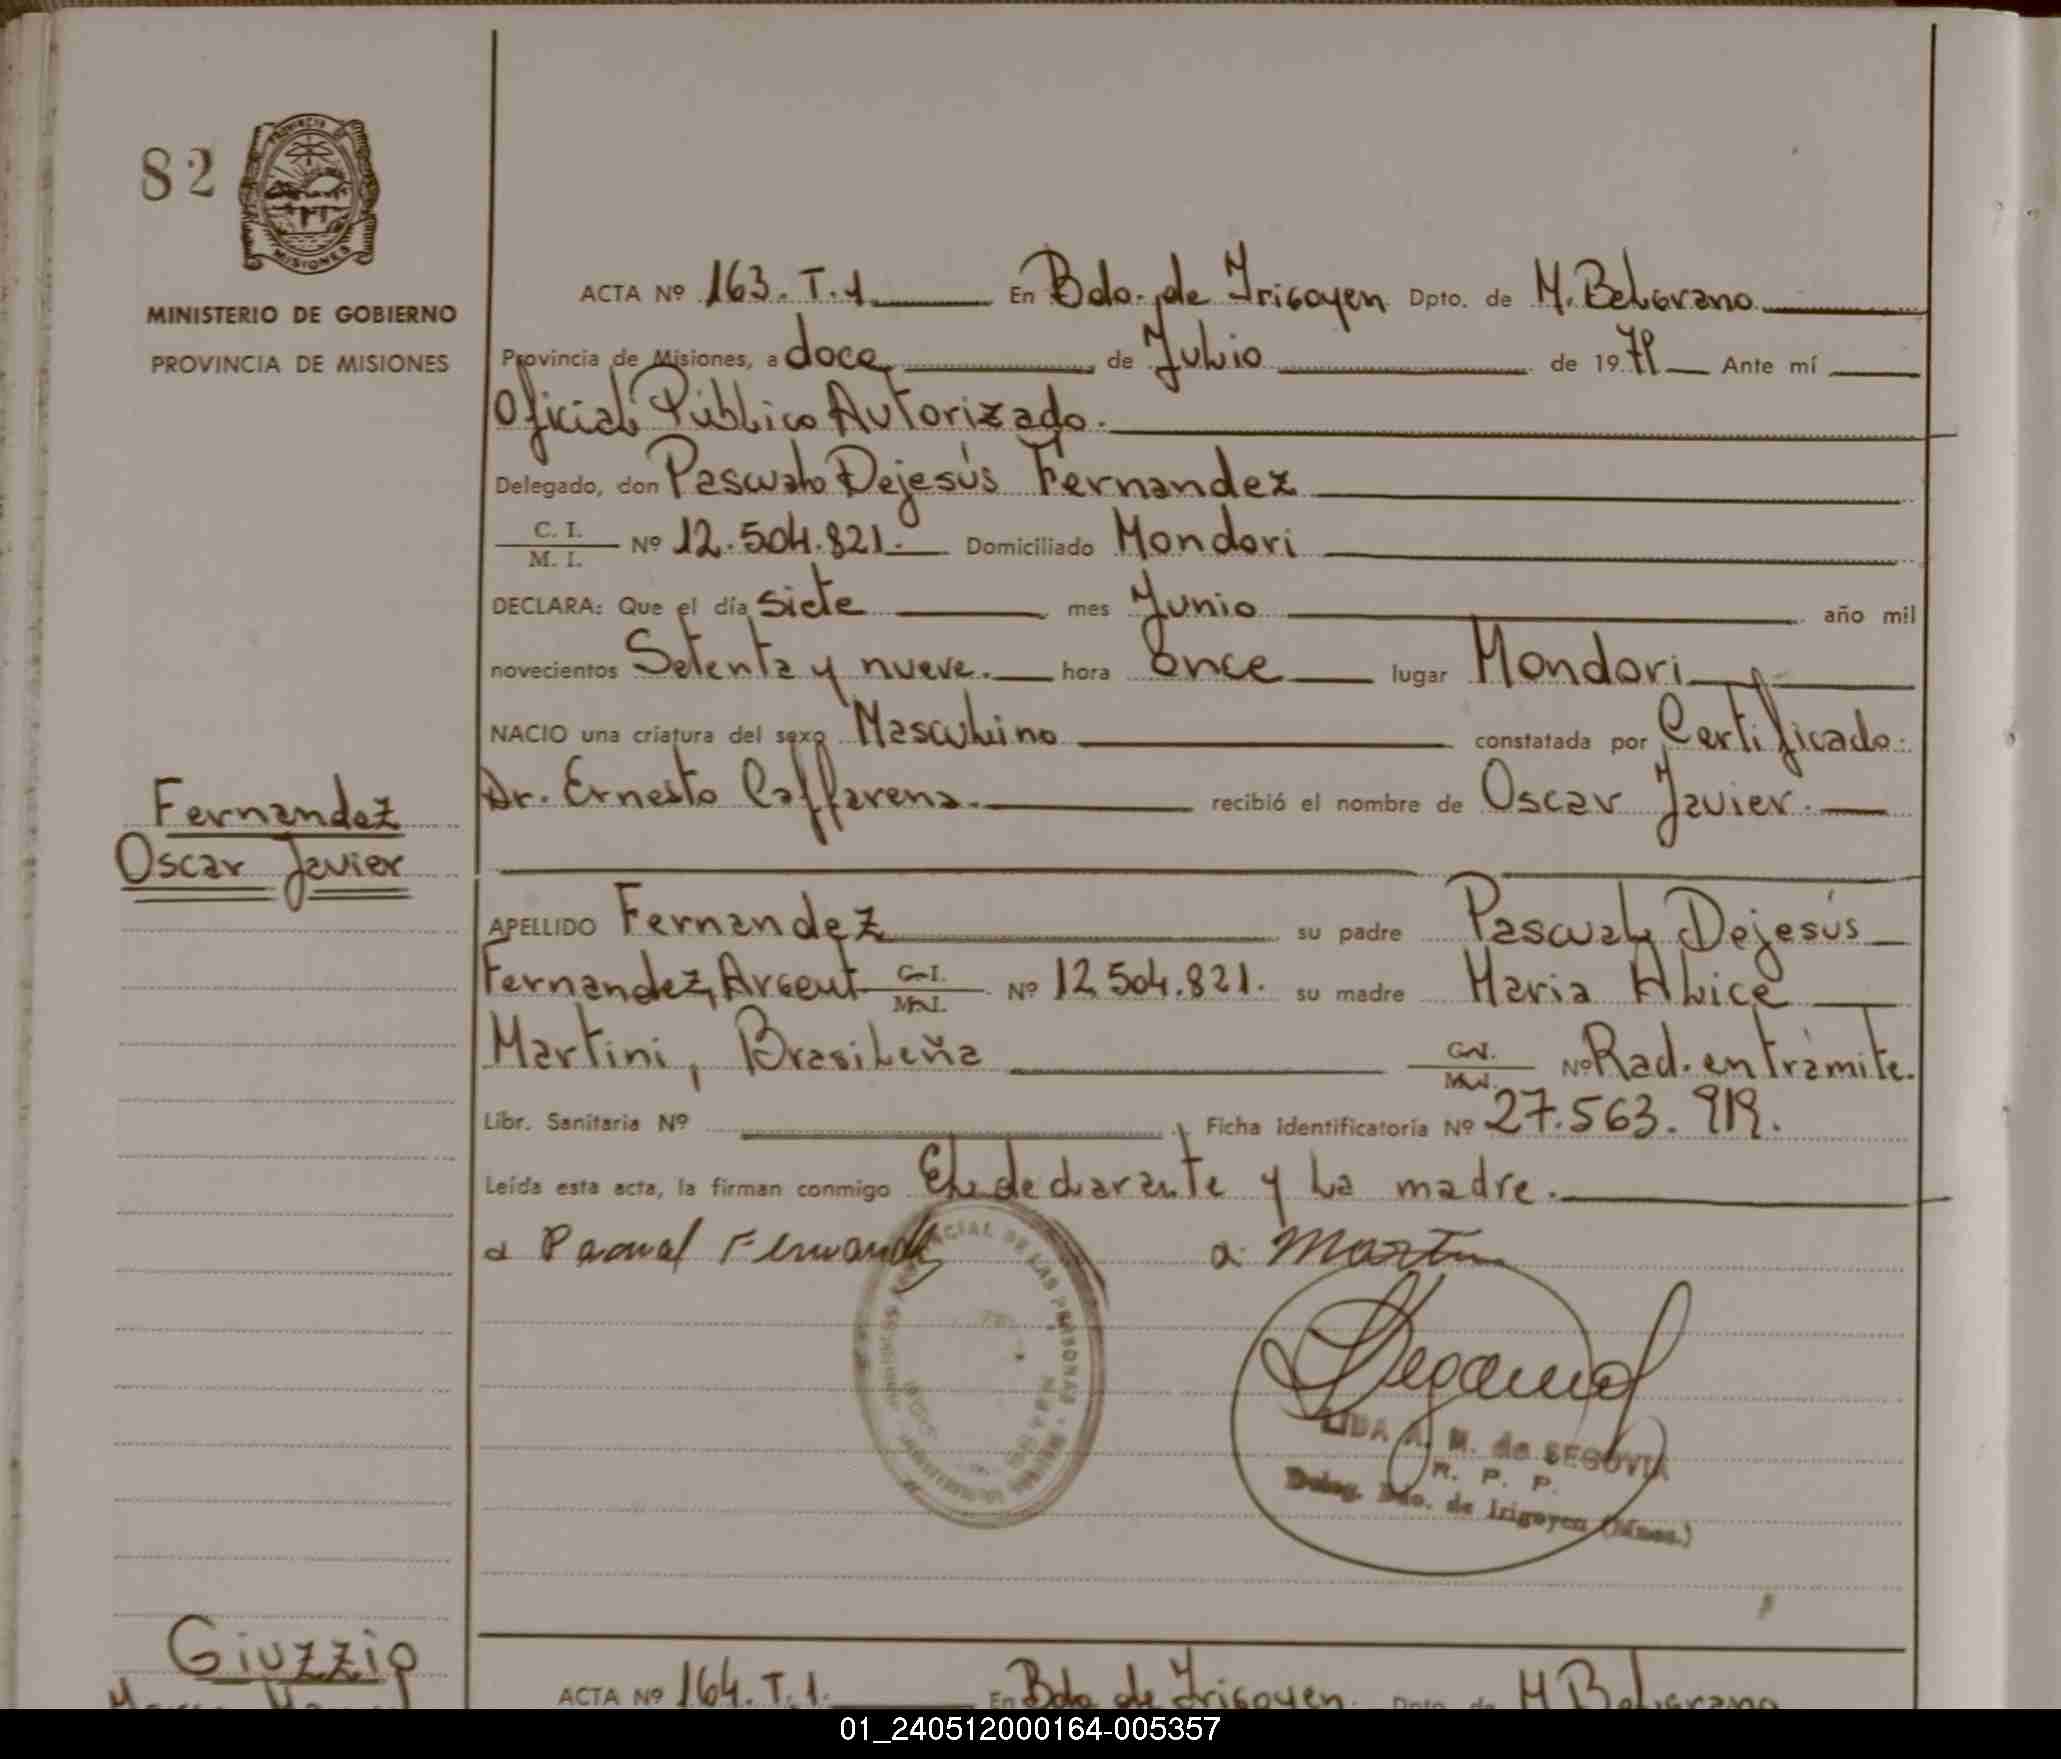 82
PROVINCIA DE
MISIONES
MINISTERIO DE GOBIERNO
PROVINCIA DE MISIONES
ACTA Nº 163. T. 1 En Bdo. de Irigoyen Dpto. de M. Belgrano
Provincia de Misiones, a doce de Julio de 1979 Ante mí
Oficial Público Autorizado.
Delegado, don Pascual Dejesús Fernandez
C. I.
M. I. Nº 12.504.821. Domiciliado Mondori
DECLARA: Que el día siete mes Junio año mil
novecientos Setenta y nueve. hora once lugar Mondori
NACIO una criatura del sexo Masculino constatada por Certificado
Dr. Ernesto Caffarena. recibió el nombre de Oscar Javier.
Fernandez
Oscar Javier
APELLIDO Fernandez su padre Pascual Dejesús
Fernandez, Argent C.I. M.I. Nº 12.504.821. su madre Maria Alice
Martini, Brasileña C.I. M.I. Nº Rad. en trámite.
Libr. Sanitaria Nº Ficha identificatoria Nº 27.563.919.
Leída esta acta, la firman conmigo El declarante y la madre.
a Pascual Fernandez a: Martini
CIAL DE LAS PERSONAS
LIDA A. M. de SEGOVIA
R. P. P.
Deleg. Bdo. de Irigoyen (Mnes.)
Giuzzio
ACTA Nº 164. T. 1. En Bdo de Irigoyen. Dpto. de M Belgrano
01_240512000164-005357